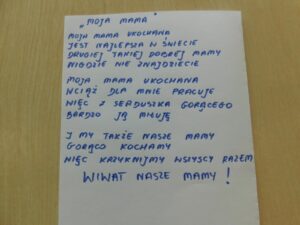 „MOJA MAMA"
MOJA MAMA UKOCHANA
JEST NAJLEPSZA W ŚWIECIE
DRUGIEJ TAKIEJ DOBREJ MAMY
NIGDZIE NIE ZNAJDZIECIE
MOJA MAMA UKOCHANA
WCIĄŻ DLA MNIE PRACUJE
WIĘC Z SERDUSZKA GORĄCEGO
BARDZO JĄ MIŁUJĘ
I MY TAKŻE NASZE MAMY
GORĄCO KOCHAMY
WIĘC KRZYKNIJMY WSZYSCY RAZEM
WIWAT NASZE MAMY !